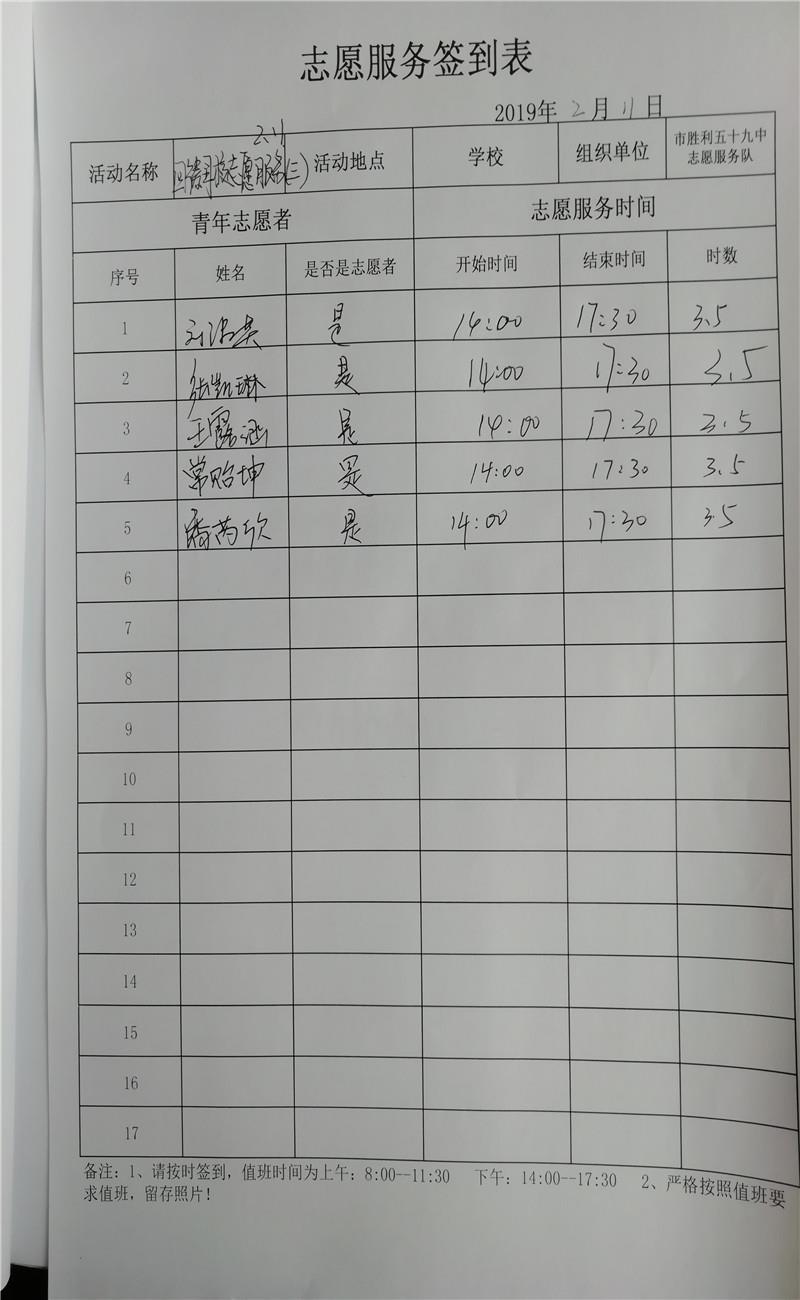 志愿服务签到表
2019年 2 月 11 日
2.11
活动名称 志愿服务(三) 活动地点 学校 组织单位 市胜利五十九中志愿服务队
青年志愿者 志愿服务时间
序号 姓名 是否是志愿者 开始时间 结束时间 时数
1 是 14:00 17:30 3.5
2 张凯琳 是 14:00 17:30 3.5
3 王露涵 是 14:00 17:30 3.5
4 常贻坤 是 14:00 17:30 3.5
5 是 14:00 17:30 3.5
6
7
8
9
10
11
12
13
14
15
16
17
备注：1、请按时签到，值班时间为上午：8:00--11:30 下午：14:00--17:30 2、严格按照值班要
求值班，留存照片！